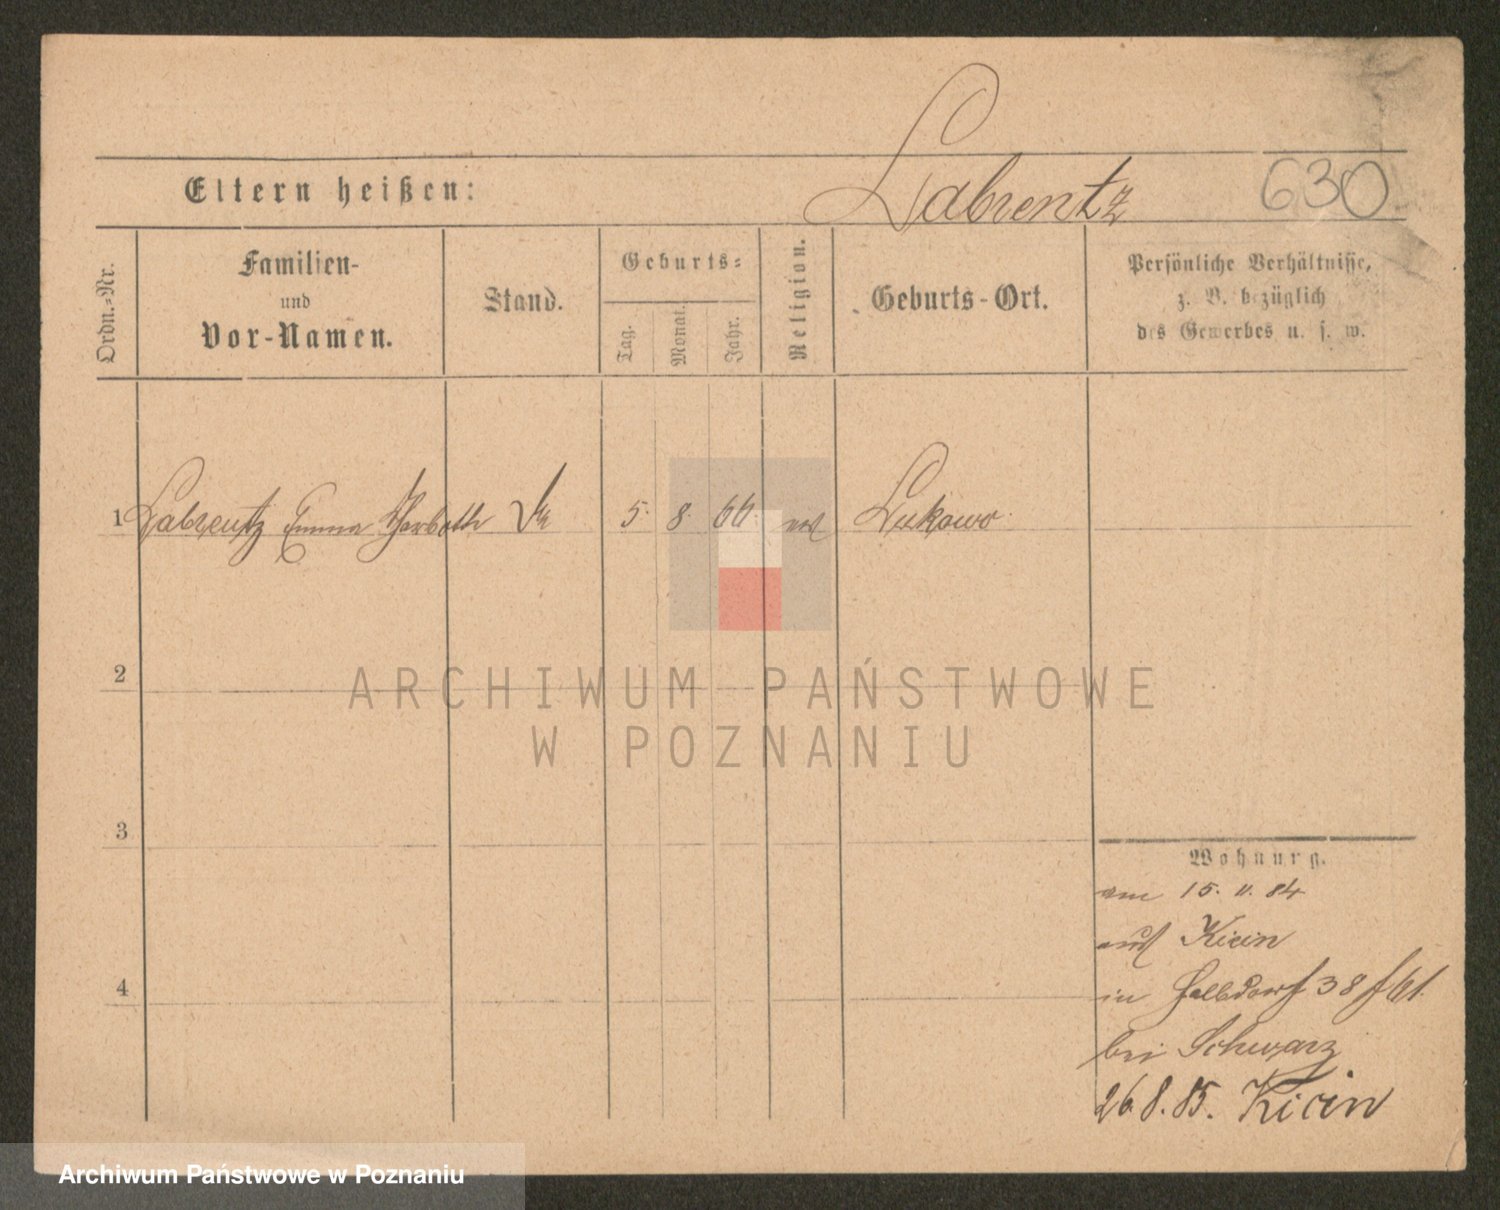 Labrentz 630
Eltern heißen:
Ordn.-Nr.
Familien-
und
Vor-Namen.
Stand.
Geburts-
Tag.
Monat.
Jahr.
Religion.
Geburts-Ort.
Persönliche Verhältnisse,
z. B. bezüglich
des Gewerbes u. s. w.
1 Labrentz Emma 5. 8. 66. Lukowo
2
3
4
Wohnung.
am 15. 11. 84
aus Kicin
in Halbdorf 38
bei Schwarz
26.8.85. Kicin
ARCHIWUM PAŃSTWOWE
W POZNANIU
Archiwum Państwowe w Poznaniu